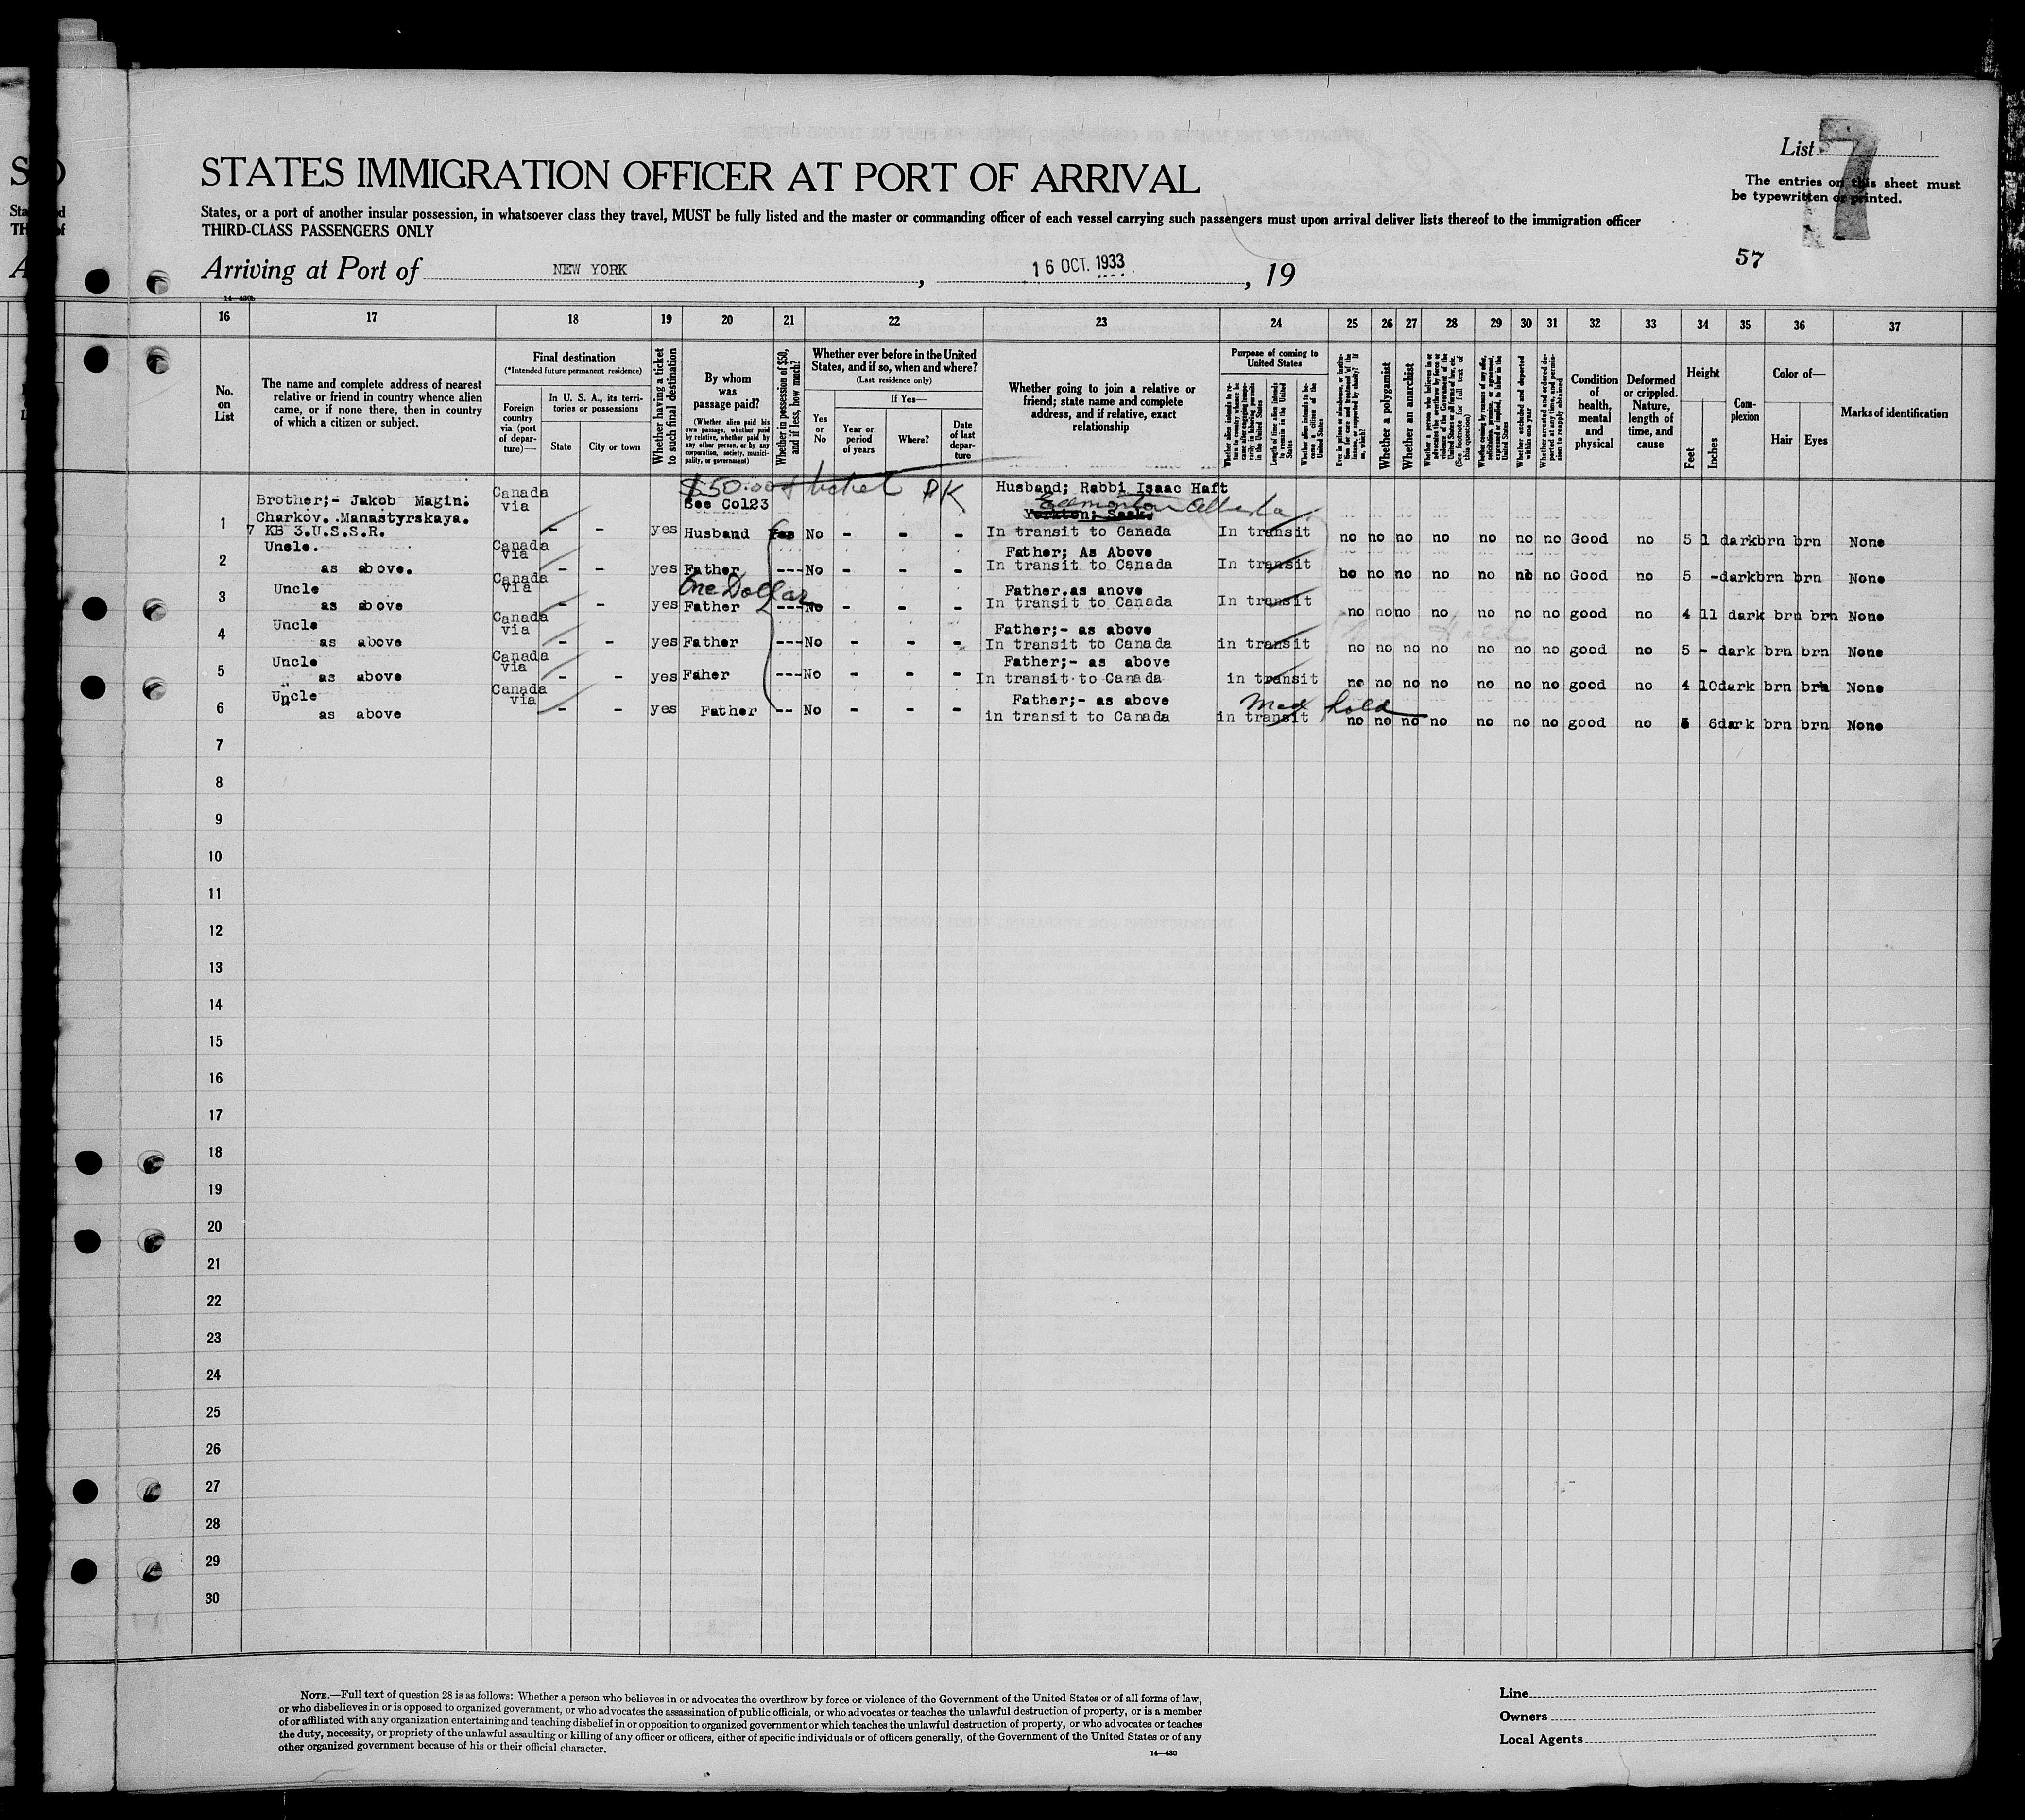 STATES IMMIGRATION OFFICER AT PORT OF ARRIVAL
List 7
The entries on this sheet must
be typewritten or printed.
States, or a port of another insular possession, in whatsoever class they travel, MUST be fully listed and the master or commanding officer of each vessel carrying such passengers must upon arrival deliver lists thereof to the immigration officer
THIRD-CLASS PASSENGERS ONLY
57
Arriving at Port of NEW YORK, 16 OCT. 1933, 19
16 17 18 19 20 21 22 23 24 25 26 27 28 29 30 31 32 33 34 35 36 37
No. on List
The name and complete address of nearest
relative or friend in country whence alien
came, or if none there, then in country
of which a citizen or subject.
Final destination
(*Intended future permanent residence)
Foreign country via (port of departure)—
In U. S. A., its territories or possessions
State
City or town
Whether having a ticket to such final destination
By whom was passage paid?
(Whether alien paid his own passage, whether paid by relative, whether paid by any other person, or by any corporation, society, municipality, or government)
Whether in possession of $50, and if less, how much?
Whether ever before in the United
States, and if so, when and where?
(Last residence only)
Yes or No
If Yes—
Year or period of years
Where?
Date of last departure
Whether going to join a relative or
friend; state name and complete
address, and if relative, exact
relationship
Purpose of coming to
United States
Length of time alien intends to remain in the United States
Whether alien intends to become a citizen of the United States
Whether a polygamist
Whether an anarchist
Condition of health, mental and physical
Deformed or crippled. Nature, length of time, and cause
Height
Feet
Inches
Complexion
Color of—
Hair
Eyes
Marks of identification
$50.00 + ticket RK
1 Brother;- Jakob Magin. Canada via - - yes See Col23 Husband Yes No - - - Husband; Rabbi Isaac Haft
Charkov. Manastyrskaya. Edmonton Alberta
7 KB 3.U.S.S.R. Yorkton; Sask. In transit to Canada In transit no no no no no no no Good no 5 1 dark brn brn None
2 Uncle. as above. Canada via - - yes Father --- No - - - Father; As Above In transit to Canada In transit no no no no no no no Good no 5 - dark brn brn None
One Dollar
3 Uncle as above Canada via - - yes Father --- No - - - Father.as anove In transit to Canada In transit no no no no no no no good no 4 11 dark brn brn None
4 Uncle as above Canada via - - yes Father --- No - - - Father;- as above In transit to Canada in transit no no no no no no no good no 5 - dark brn brn None
5 Uncle as above Canada via - - yes Faher --- No - - - Father;- as above In transit to Canada in transit no no no no no no no good no 4 10 dark brn brn None
Med hold
6 Uncle as above Canada via - - yes Father -- No - - - Father;- as above in transit to Canada in transit no no no no no no no good no 6 dark brn brn None
7
8
9
10
11
12
13
14
15
16
17
18
19
20
21
22
23
24
25
26
27
28
29
30
NOTE.—Full text of question 28 is as follows: Whether a person who believes in or advocates the overthrow by force or violence of the Government of the United States or of all forms of law,
or who disbelieves in or is opposed to organized government, or who advocates the assassination of public officials, or who advocates or teaches the unlawful destruction of property, or is a member
of or affiliated with any organization entertaining and teaching disbelief in or opposition to organized government or which teaches the unlawful destruction of property, or who advocates or teaches
the duty, necessity, or propriety of the unlawful assaulting or killing of any officer or officers, either of specific individuals or of officers generally, of the Government of the United States or of any
other organized government because of his or their official character.
14—430
Line
Owners
Local Agents